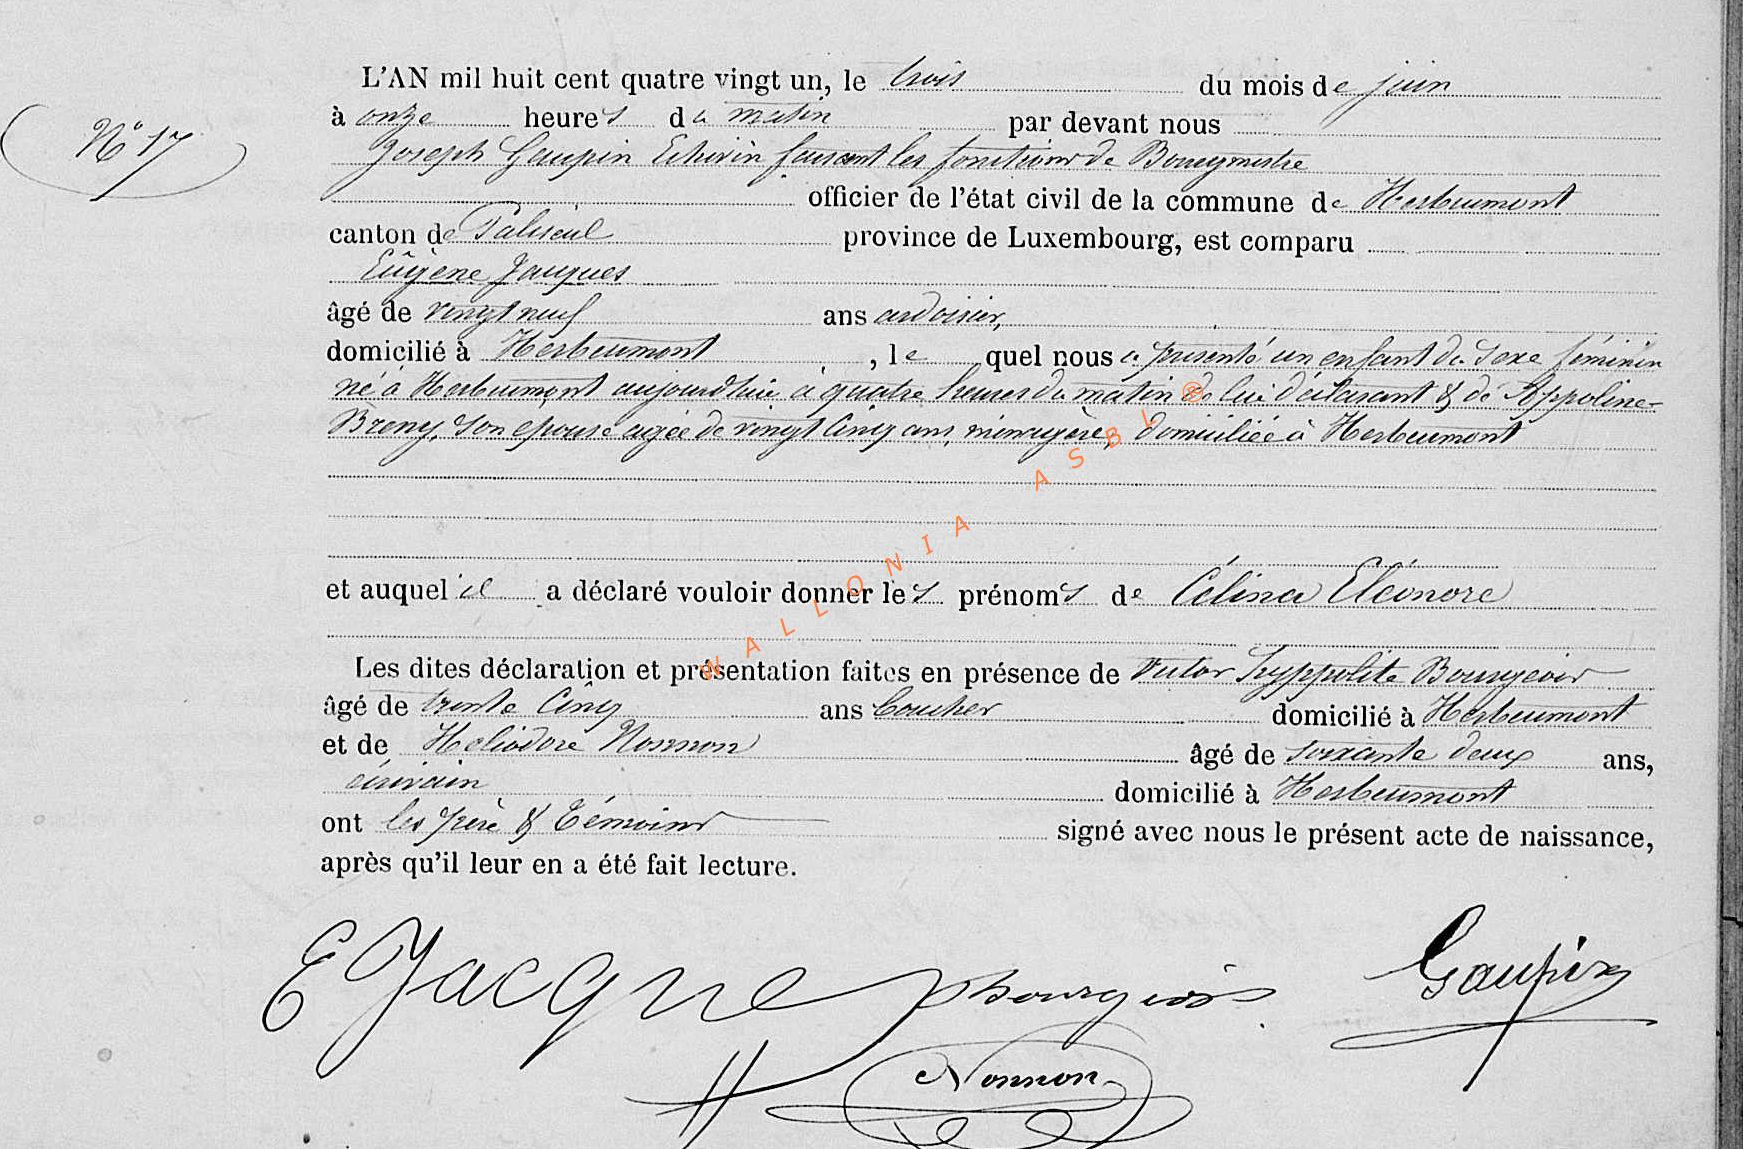 L'AN mil huit cent quatre vingt un, le trois du mois de juin
N° 17
à onze heures du matin par devant nous
Joseph Gaupin Echevin faisant les fonctions de Bourgmestre
officier de l'état civil de la commune de Herbeumont
canton de Paliseul province de Luxembourg, est comparu
Eugène Jacques
âgé de vingt neuf ans ardoisier,
domicilié à Herbeumont, lequel nous a présenté un enfant du sexe féminin
né à Herbeumont aujourd'hui à quatre heures du matin de lui déclarant & de Appoline
Breny, son épouse agée de vingt cinq ans, ménagère, domiciliée à Herbeumont
WALLONIA ASBL ®
et auquel il a déclaré vouloir donner les prénoms de Célina Eléonore
Les dites déclaration et présentation faites en présence de Victor Hyppolite Bourgeois
âgé de trente cinq ans domicilié à Herbeumont
et de Héliodore Nonnon âgé de soixante deux ans,
écrivain domicilié à Herbeumont
ont les père & témoins signé avec nous le présent acte de naissance,
après qu'il leur en a été fait lecture.
E Jacque Bourgeois Gaupin
Nonnon